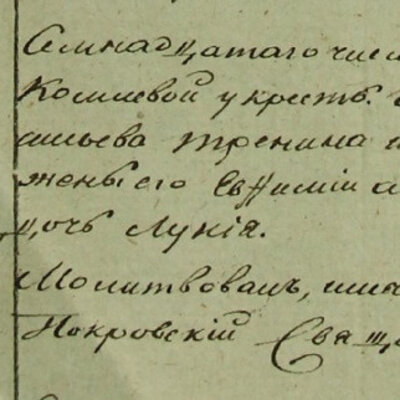 Семнадцатаго числ
Комлевой у крестъ.
ильева Тренина и
жены его Евѳиміи
дочь Лукія.
Молитвовалъ, има
Покровскій Свящ